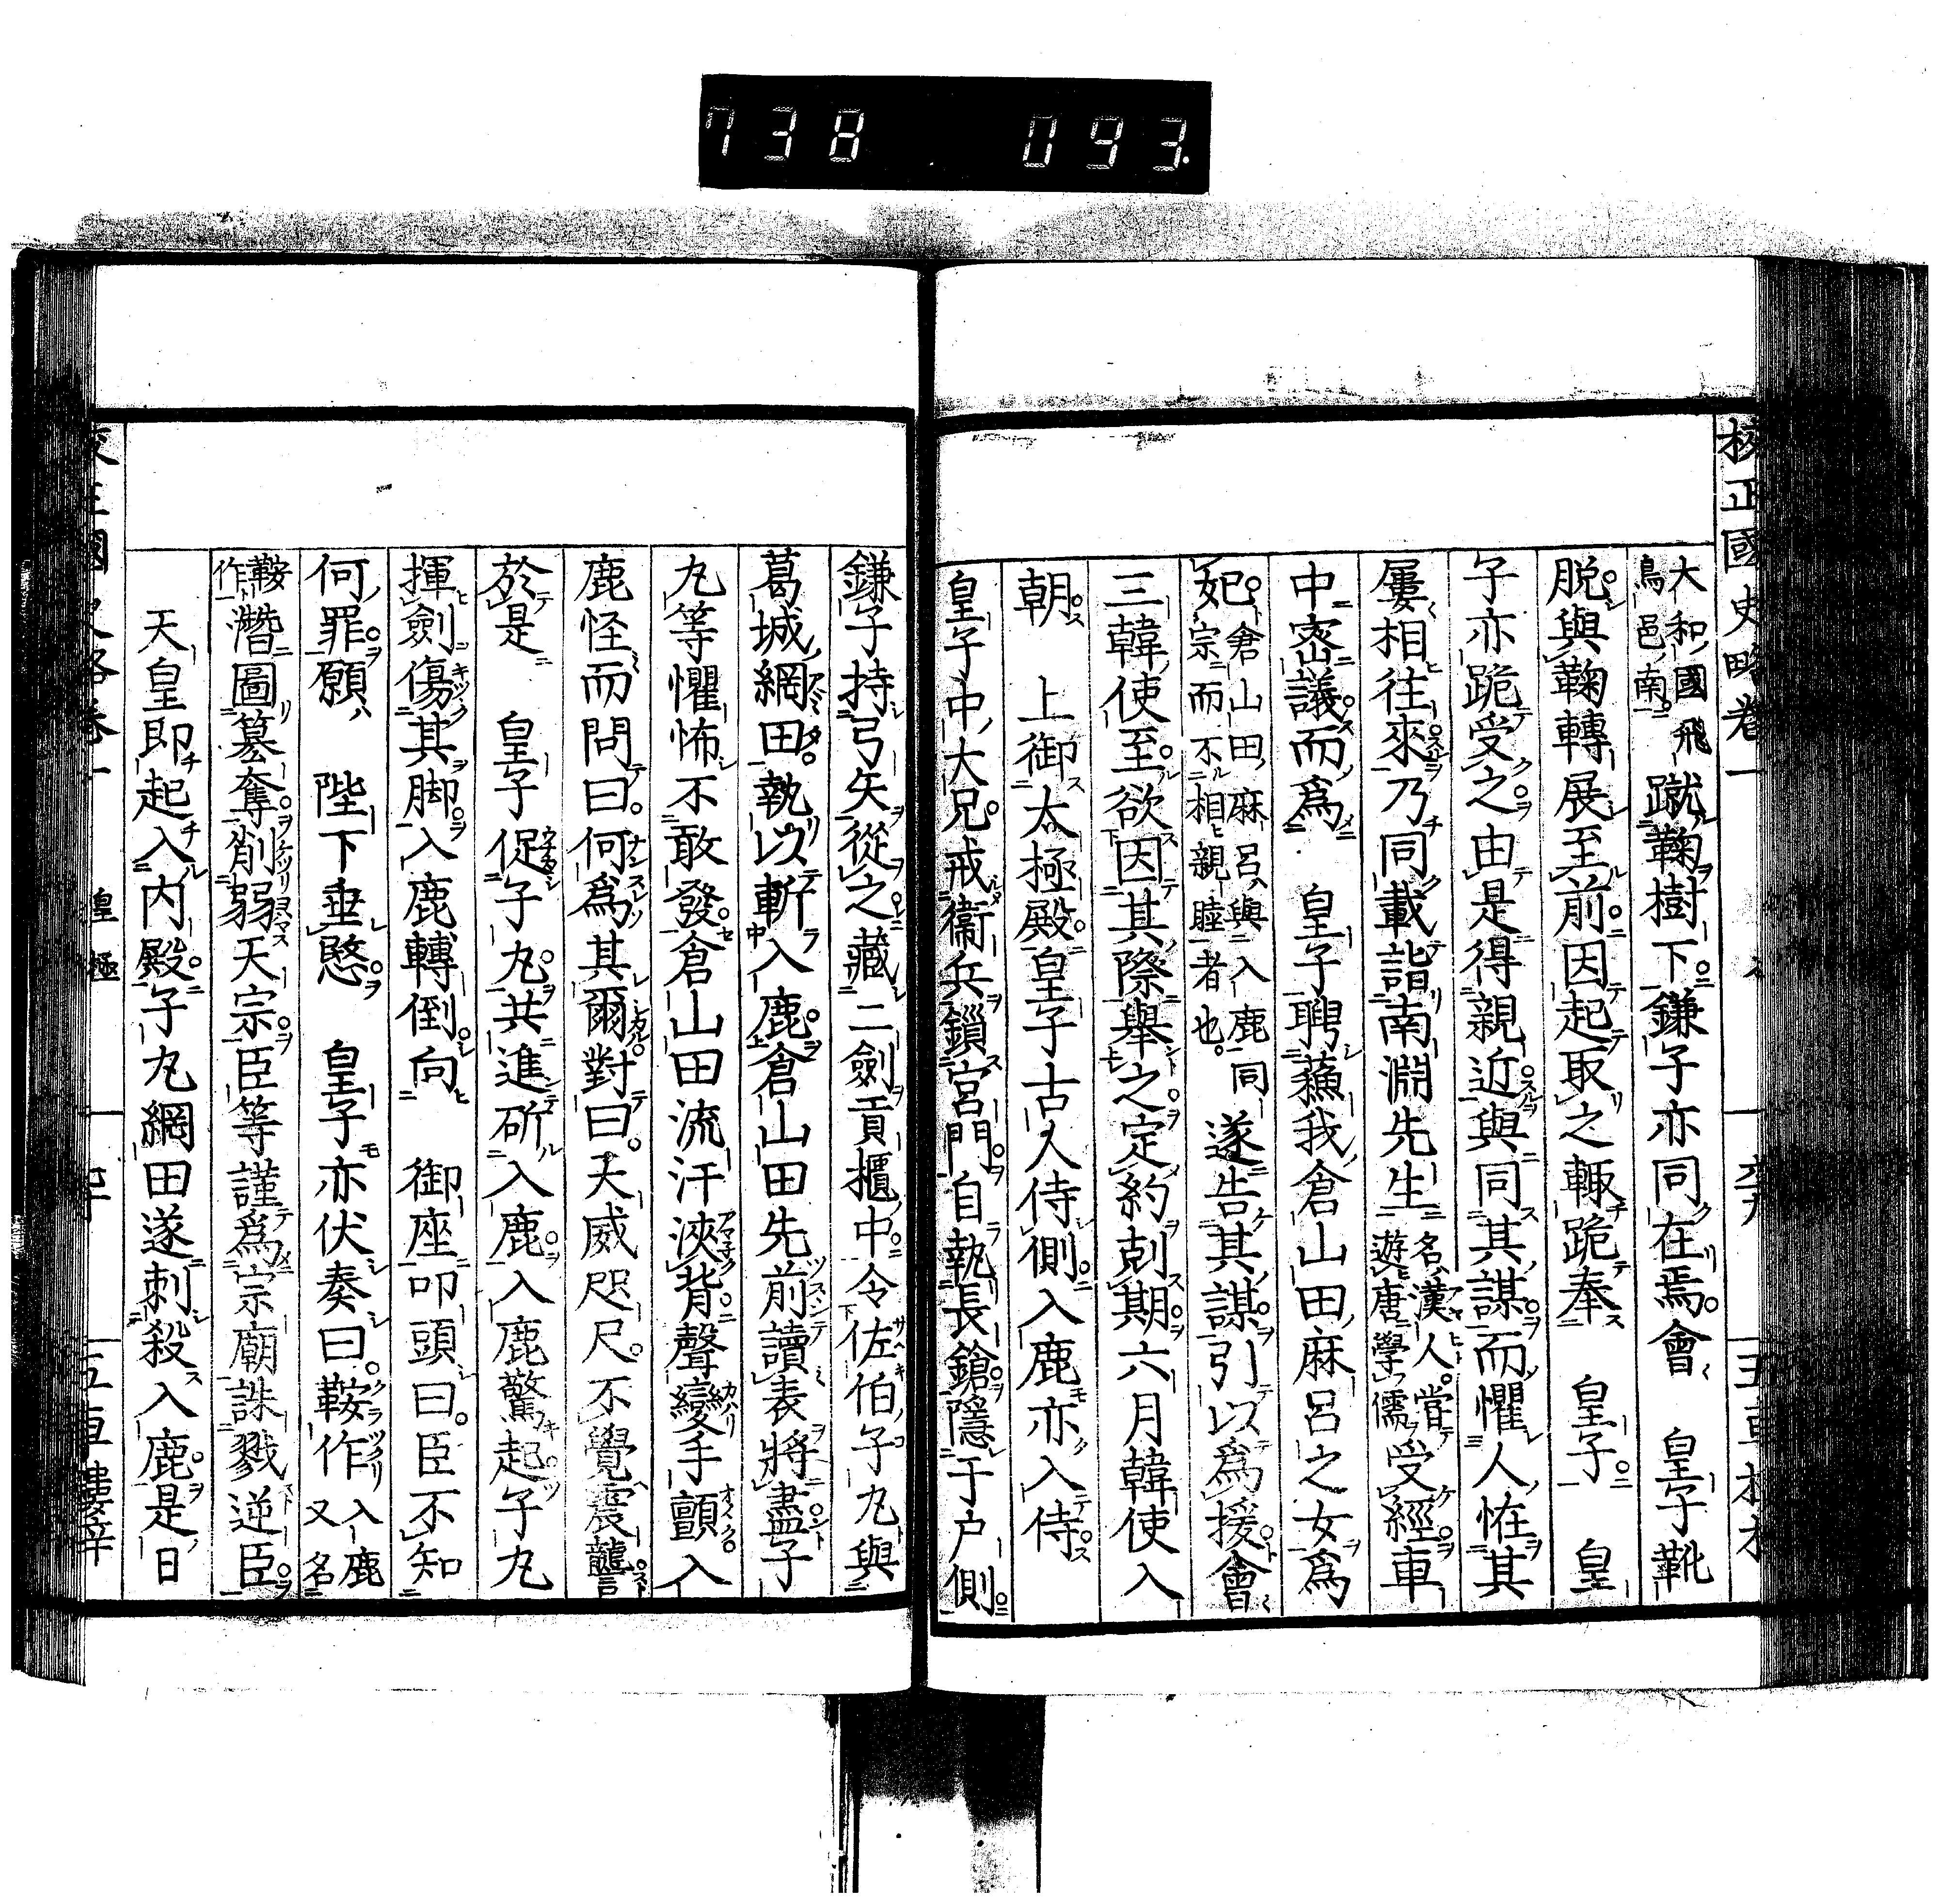 738 093
校正國史略卷一
大和國飛鳥邑南蹴鞠樹下鎌子亦同在焉會 皇子靴
脱與鞠轉展至前因起取之輙跪奉 皇子 皇
子亦跪受之由是得親近與同其謀而懼人恠其
屢相往來乃同載詣南淵先生名漢人嘗遊唐學儒受經車
中密議而爲 皇子聘蘓我倉山田麻呂之女爲
妃倉山田麻呂與入鹿同宗而不相親睦者也遂告其謀引以爲援會
三韓使至欲因其際舉之定約剋期六月韓使入
朝 上御太極殿皇子古人侍側入鹿亦入侍
皇子中大兄戒衞兵鎻宮門自執長鎗隱于户側
鎌子持弓矢從之藏二劍貢櫃中令佐伯子丸與
葛城網田執以斬入鹿倉山田先前讀表將盡子
丸等懼怖不敢發倉山田流汗浹背聲變手顫入
鹿怪而問曰何爲其爾對曰天威咫尺不覺震讋
於是 皇子促子丸共進斫入鹿入鹿驚起子丸
揮劍傷其脚入鹿轉倒向 御座叩頭曰臣不知
何罪願 陛下垂愍 皇子亦伏奏曰鞍作入鹿又名
鞍作潛圖簒奪削弱天宗臣等謹爲宗廟誅戮逆臣
天皇即起入内殿子丸網田遂刺殺入鹿是日
皇極